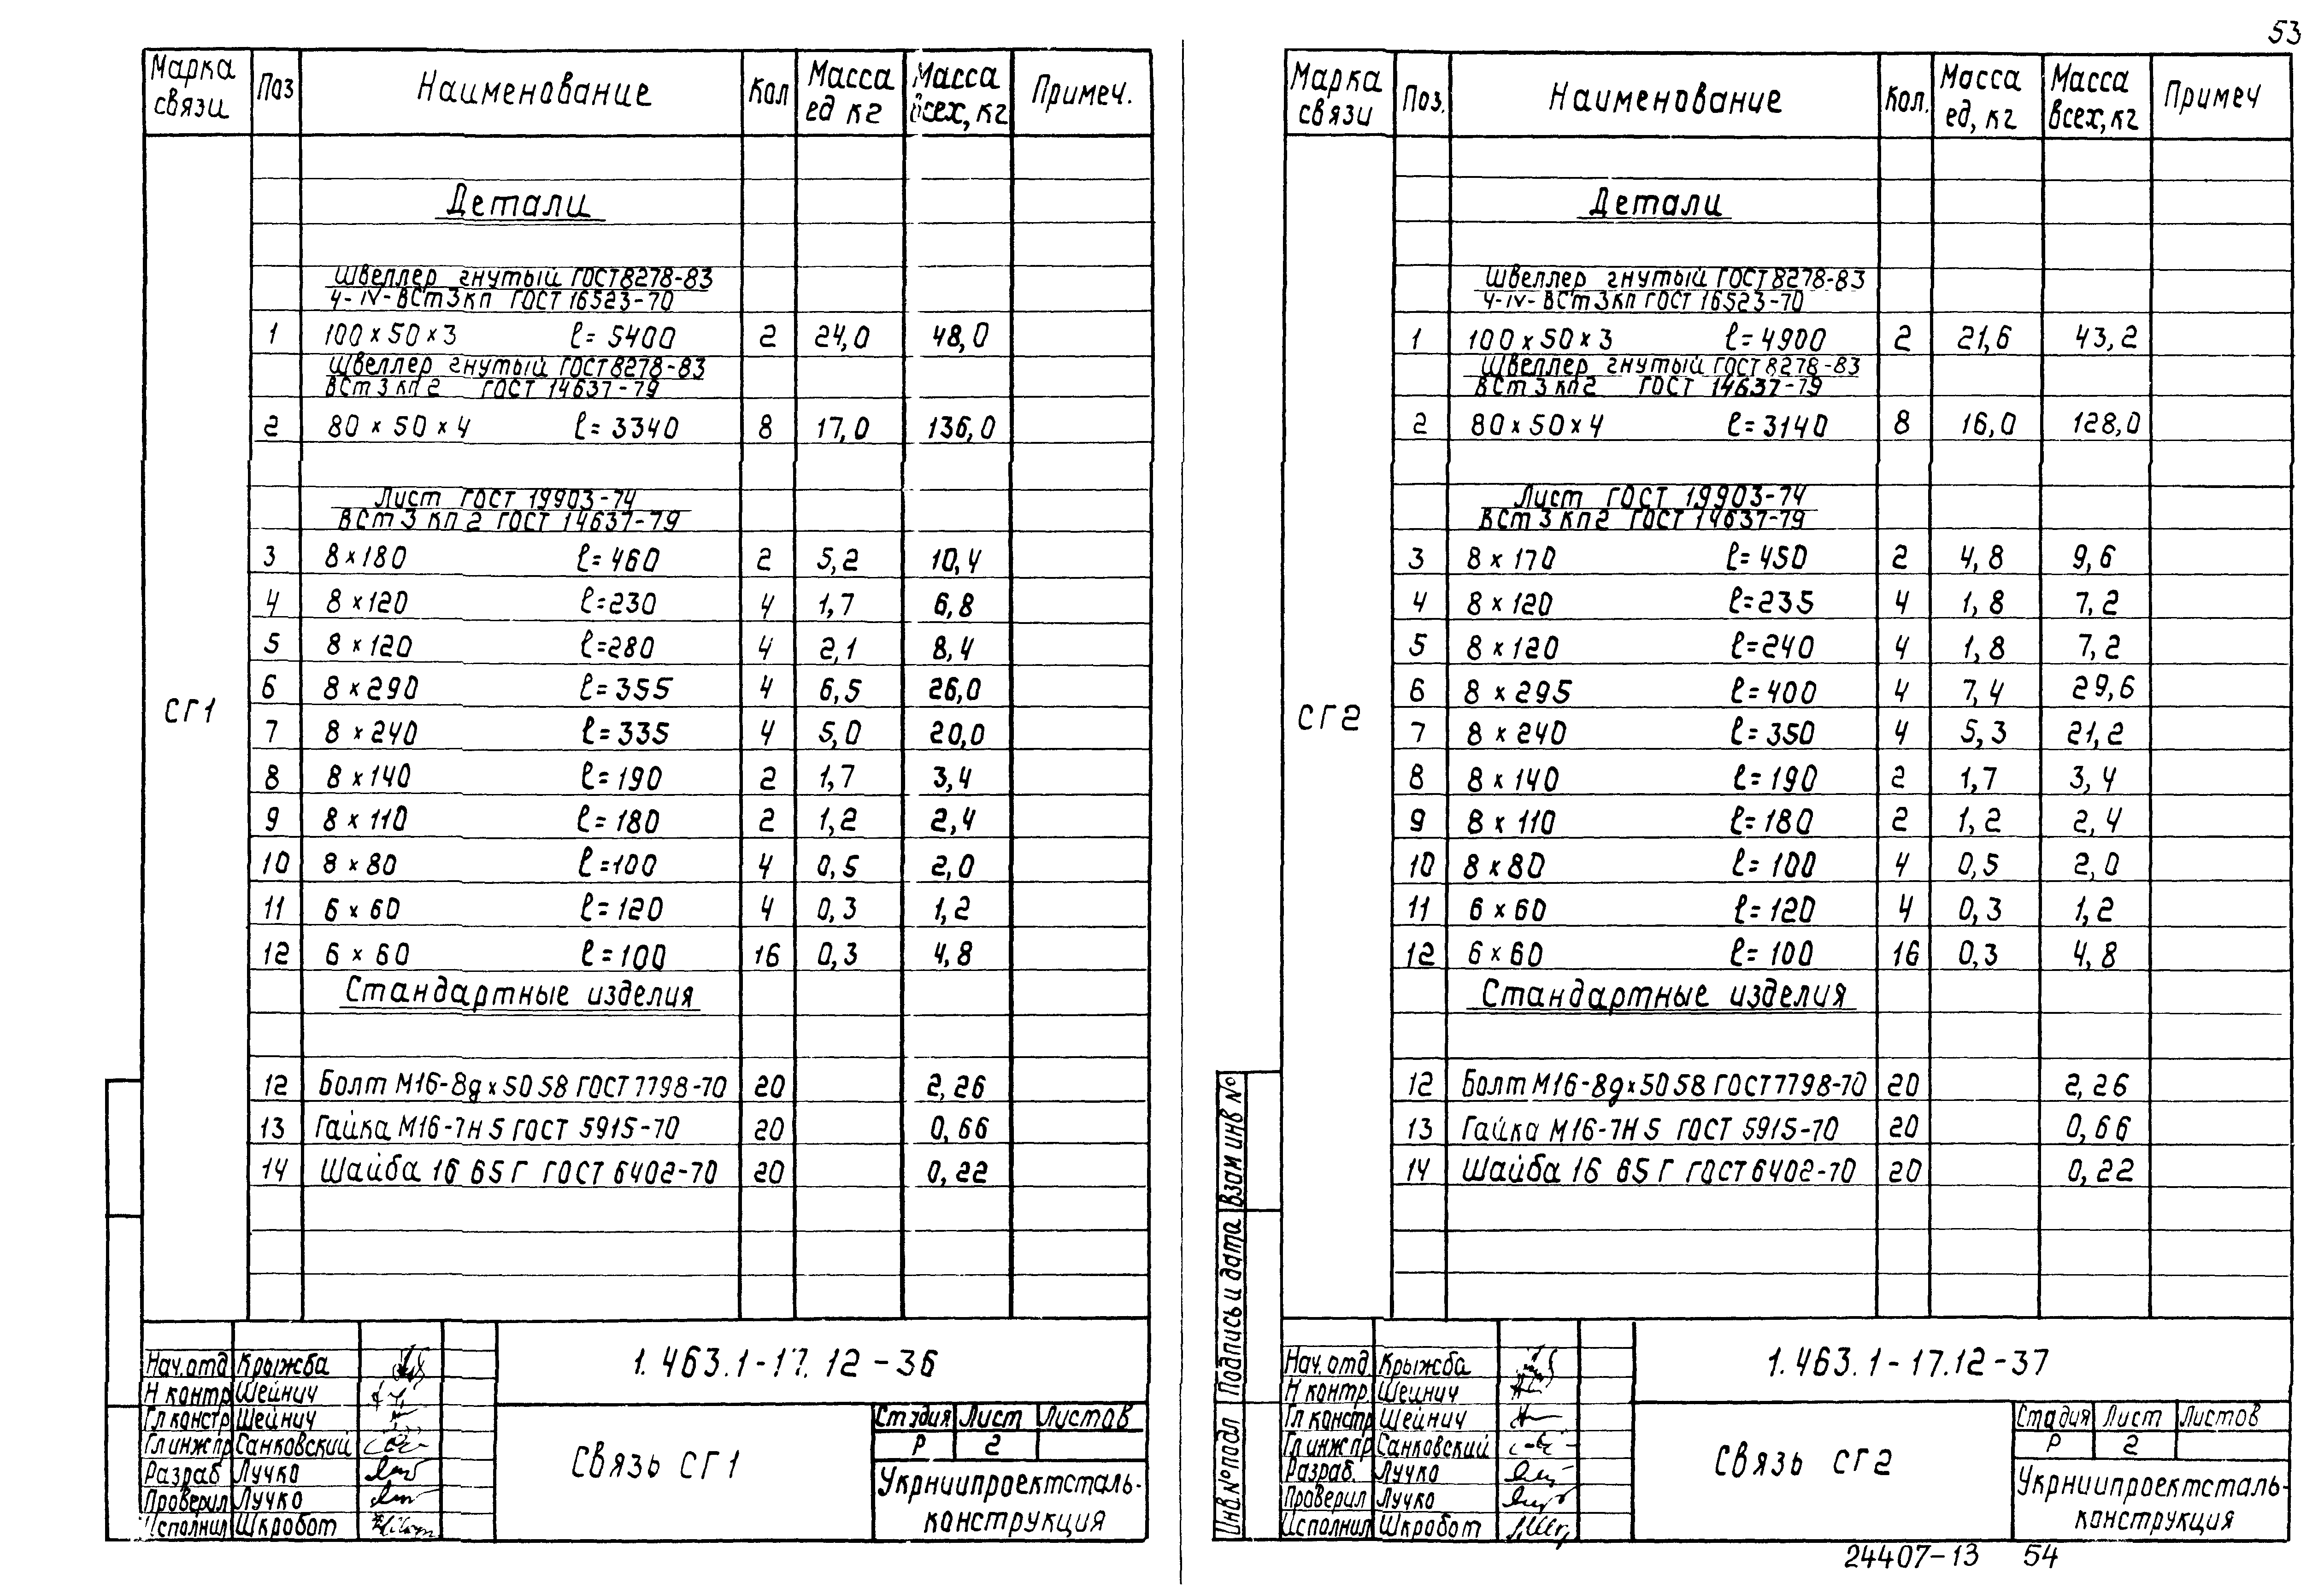 53
Марка связи Поз Наименование Кол Масса ед кг Масса всех, кг Примеч.
Детали
Швеллер гнутый ГОСТ 8278-83
4-IV-ВСт3кп ГОСТ 16523-70
1 100×50×3 ℓ=5400 2 24,0 48,0
Швеллер гнутый ГОСТ 8278-83
ВСт3кп2 ГОСТ 14637-79
2 80×50×4 ℓ=3340 8 17,0 136,0
Лист ГОСТ 19903-74
ВСт3кп2 ГОСТ 14637-79
3 8×180 ℓ=460 2 5,2 10,4
4 8×120 ℓ=230 4 1,7 6,8
5 8×120 ℓ=280 4 2,1 8,4
6 8×290 ℓ=355 4 6,5 26,0
СГ1
7 8×240 ℓ=335 4 5,0 20,0
8 8×140 ℓ=190 2 1,7 3,4
9 8×110 ℓ=180 2 1,2 2,4
10 8×80 ℓ=100 4 0,5 2,0
11 6×60 ℓ=120 4 0,3 1,2
12 6×60 ℓ=100 16 0,3 4,8
Стандартные изделия
12 Болт М16-8g×50 58 ГОСТ 7798-70 20 2,26
13 Гайка М16-7Н 5 ГОСТ 5915-70 20 0,66
14 Шайба 16 65Г ГОСТ 6402-70 20 0,22
1.463.1-17.12-36
Нач.отд Крыжба
Н контр Шейнич
Гл констр Шейнич
Гл инж пр Санковский
Разраб Лучко
Проверил Лучко
Исполнил Шкробот
Связь СГ1
Стадия Лист Листов
Р 2
Укрниипроектсталь-
конструкция
Марка связи Поз. Наименование Кол. Масса ед, кг Масса всех, кг Примеч
Детали
Швеллер гнутый ГОСТ 8278-83
4-IV-ВСт3кп ГОСТ 16523-70
1 100×50×3 ℓ=4900 2 21,6 43,2
Швеллер гнутый ГОСТ 8278-83
ВСт3кп2 ГОСТ 14637-79
2 80×50×4 ℓ=3140 8 16,0 128,0
Лист ГОСТ 19903-74
ВСт3кп2 ГОСТ 14637-79
3 8×170 ℓ=450 2 4,8 9,6
4 8×120 ℓ=235 4 1,8 7,2
5 8×120 ℓ=240 4 1,8 7,2
6 8×295 ℓ=400 4 7,4 29,6
СГ2
7 8×240 ℓ=350 4 5,3 21,2
8 8×140 ℓ=190 2 1,7 3,4
9 8×110 ℓ=180 2 1,2 2,4
10 8×80 ℓ=100 4 0,5 2,0
11 6×60 ℓ=120 4 0,3 1,2
12 6×60 ℓ=100 16 0,3 4,8
Стандартные изделия
12 Болт М16-8g×50 58 ГОСТ 7798-70 20 2,26
13 Гайка М16-7Н 5 ГОСТ 5915-70 20 0,66
14 Шайба 16 65Г ГОСТ 6402-70 20 0,22
Взам инв №
Подпись и дата
Инв № подл
1.463.1-17.12-37
Нач.отд Крыжба
Н контр. Шейнич
Гл констр Шейнич
Гл инж пр Санковский
Разраб. Лучко
Проверил Лучко
Исполнил Шкробот
Связь СГ2
Стадия Лист Листов
Р 2
Укрниипроектсталь-
конструкция
24407-13 54